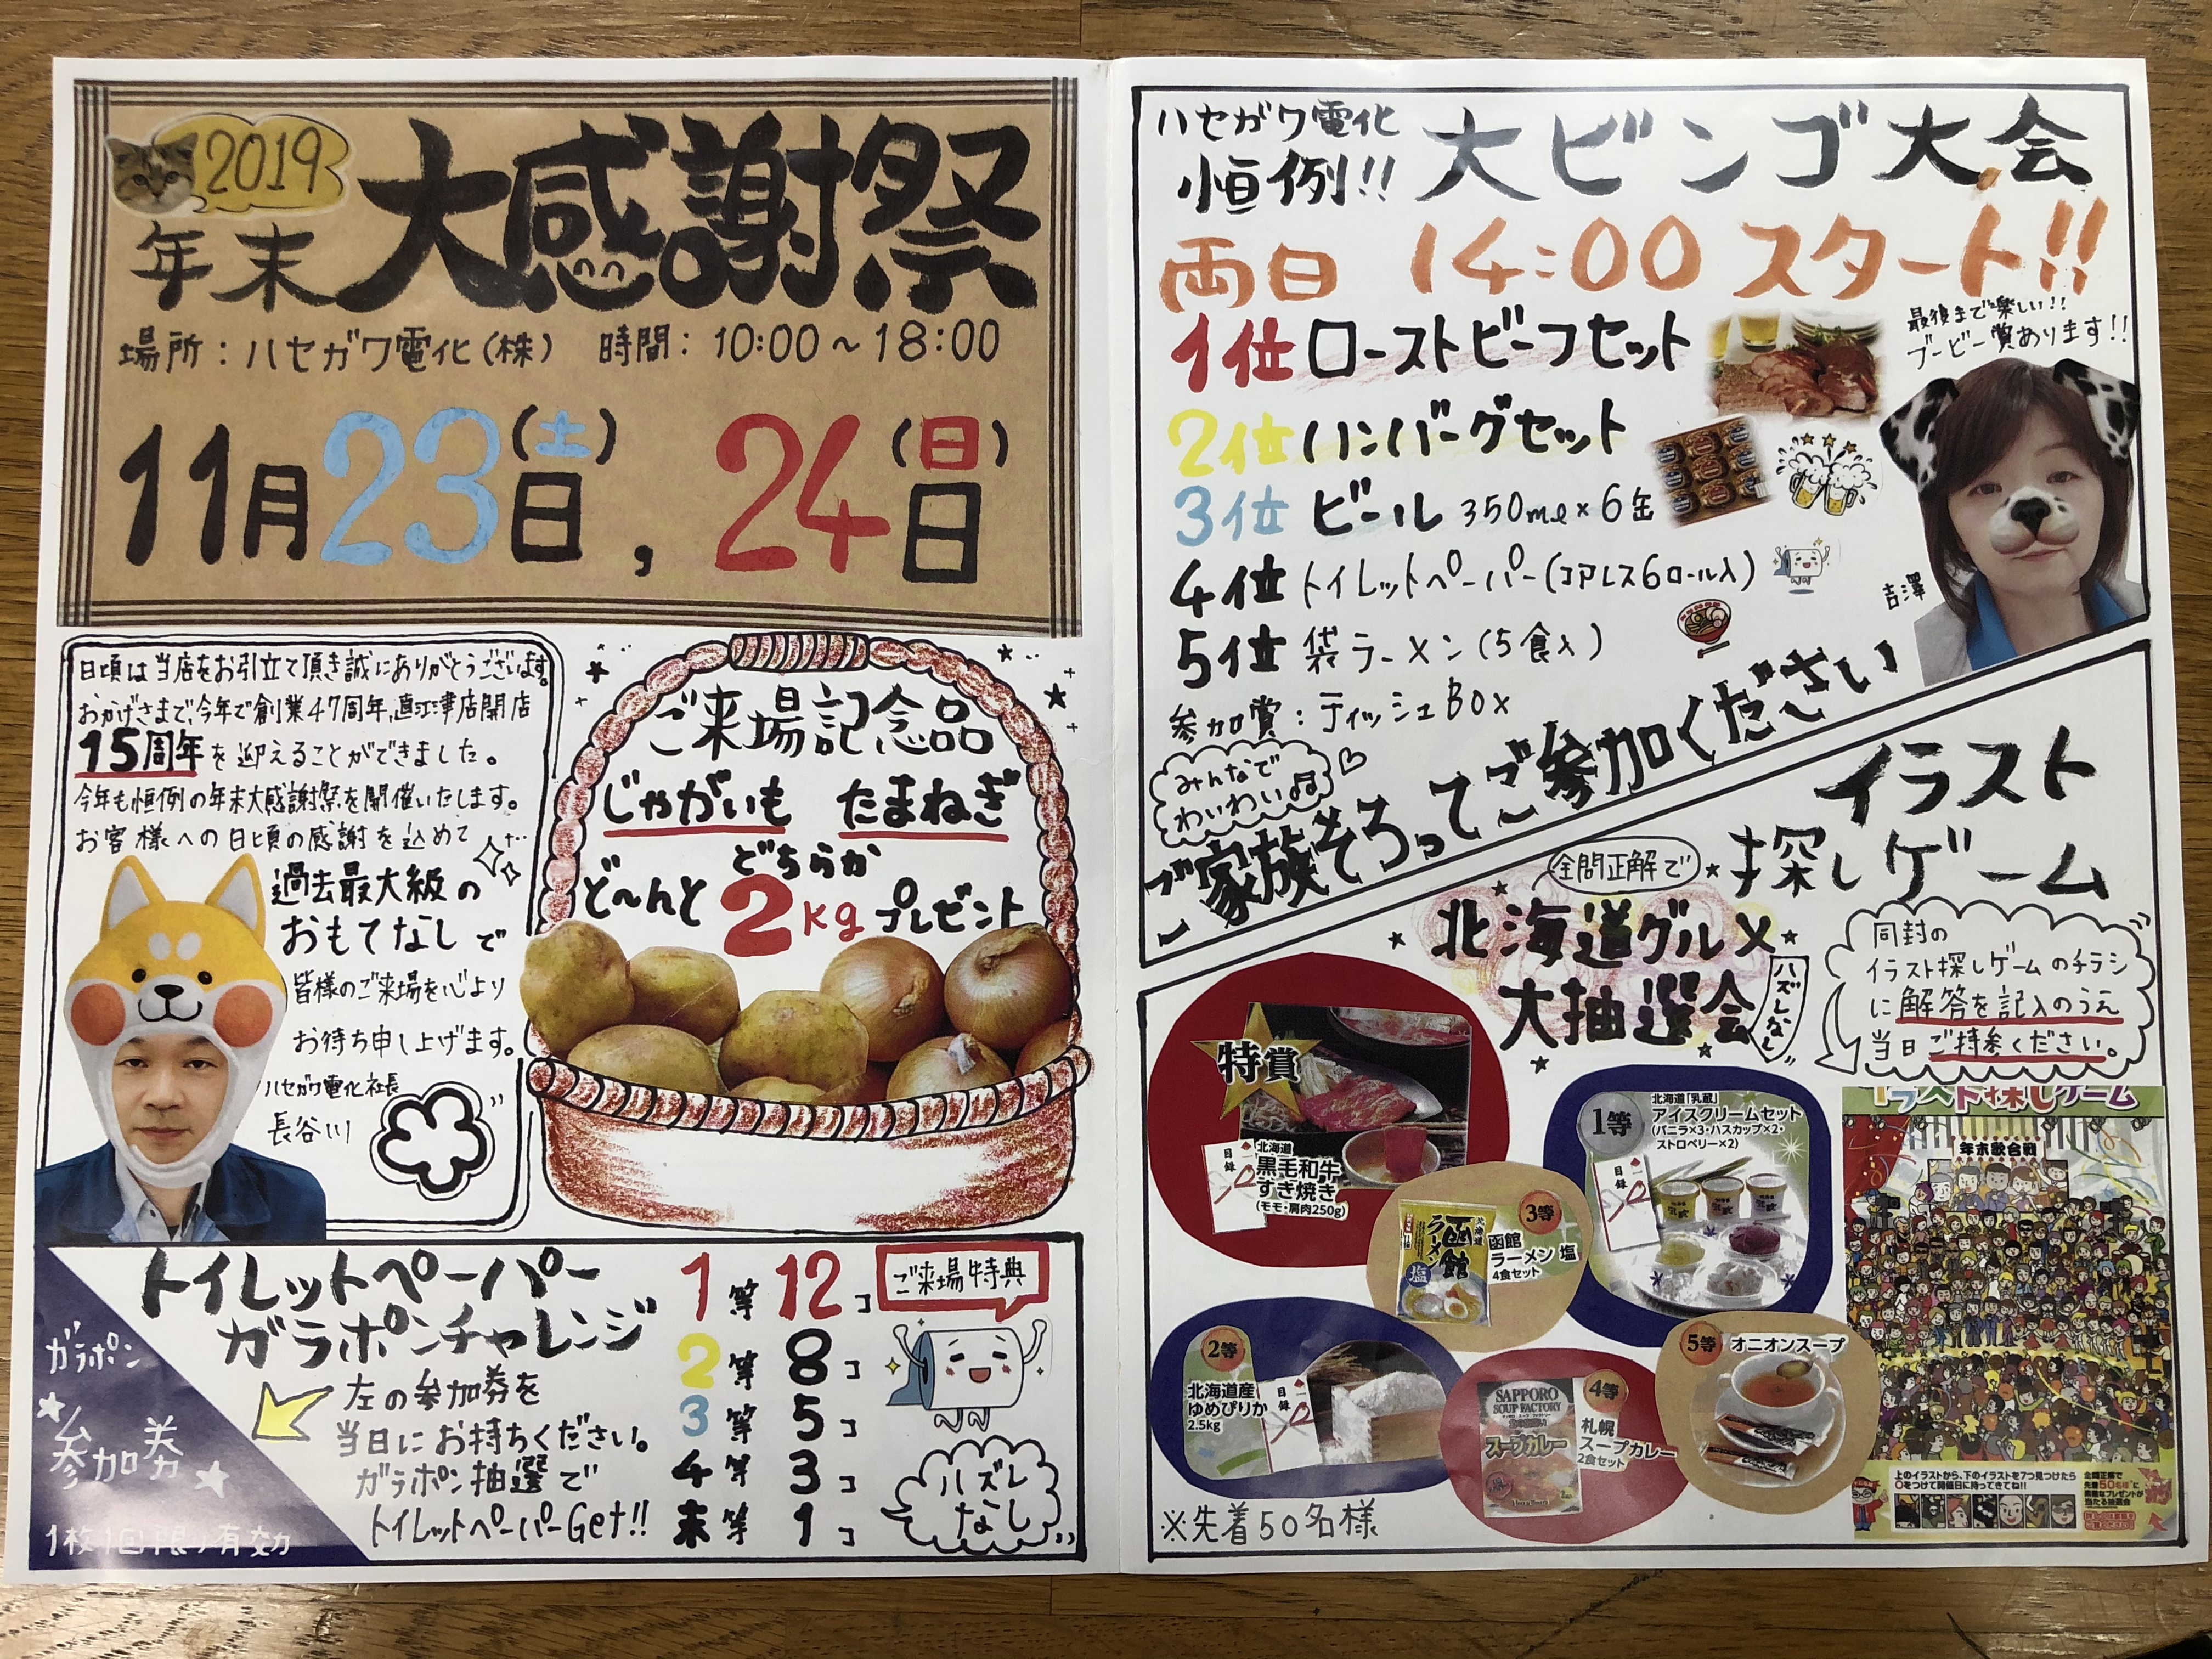 2019
年末 大感謝祭
場所：ハセガワ電化(株) 時間：10:00～18:00
11月23日(土), 24日(日)
日頃は当店をお引立て頂き誠にありがとうございます。
おかげさまで、今年で創業47周年、直江津店開店
15周年を迎えることができました。
今年も恒例の年末大感謝祭を開催いたします。
お客様への日頃の感謝を込めて
過去最大級の
おもてなしで
皆様のご来場を心より
お待ち申し上げます。
ハセガワ電化社長
長谷川
ご来場記念品
じゃがいも たまねぎ
どちらか
ど～んと 2kg プレゼント
トイレットペーパー
ガラポンチャレンジ
左の参加券を
当日にお持ちください。
ガラポン抽選で
トイレットペーパーGet!!
ガラポン
参加券
1枚1回限り有効
1等 12コ
2等 8コ
3等 5コ
4等 3コ
末等 1コ
ご来場特典
ハズレ
なし
ハセガワ電化
恒例!! 大ビンゴ大会
両日 14:00 スタート!!
1位 ローストビーフセット
2位 ハンバーグセット
3位 ビール 350ml×6缶
4位 トイレットペーパー(コアレス6ロール入)
5位 袋ラーメン(5食入)
参加賞：ティッシュBOX
最後まで楽しい!!
ブービー賞あります!!
吉澤
みんなで
わいわい♫
ご家族そろってご参加ください
イラスト
探しゲーム
全問正解で
北海道グルメ
大抽選会
ハズレなし
同封の
イラスト探しゲームのチラシ
に解答を記入のうえ
当日ご持参ください。
特賞
目録
北海道
黒毛和牛
すき焼き
(モモ・肩肉250g)
1等
北海道「乳蔵」
アイスクリームセット
(バニラ×3・ハスカップ×2・
ストロベリー×2)
目録
3等
函館
ラーメン 塩
4食セット
北海道
函館
ラーメン
塩
2等
北海道産
ゆめぴりか
2.5kg
目録
4等
札幌
スープカレー
2食セット
SAPPORO
SOUP FACTORY
スープカレー
5等 オニオンスープ
※先着50名様
イラスト探しゲーム
年末歌合戦
上のイラストから、下のイラストを7つ見つけたら
○をつけて開催日に持ってきてね!!
全問正解で
先着50名様に
素敵なプレゼントが
当たる抽選会